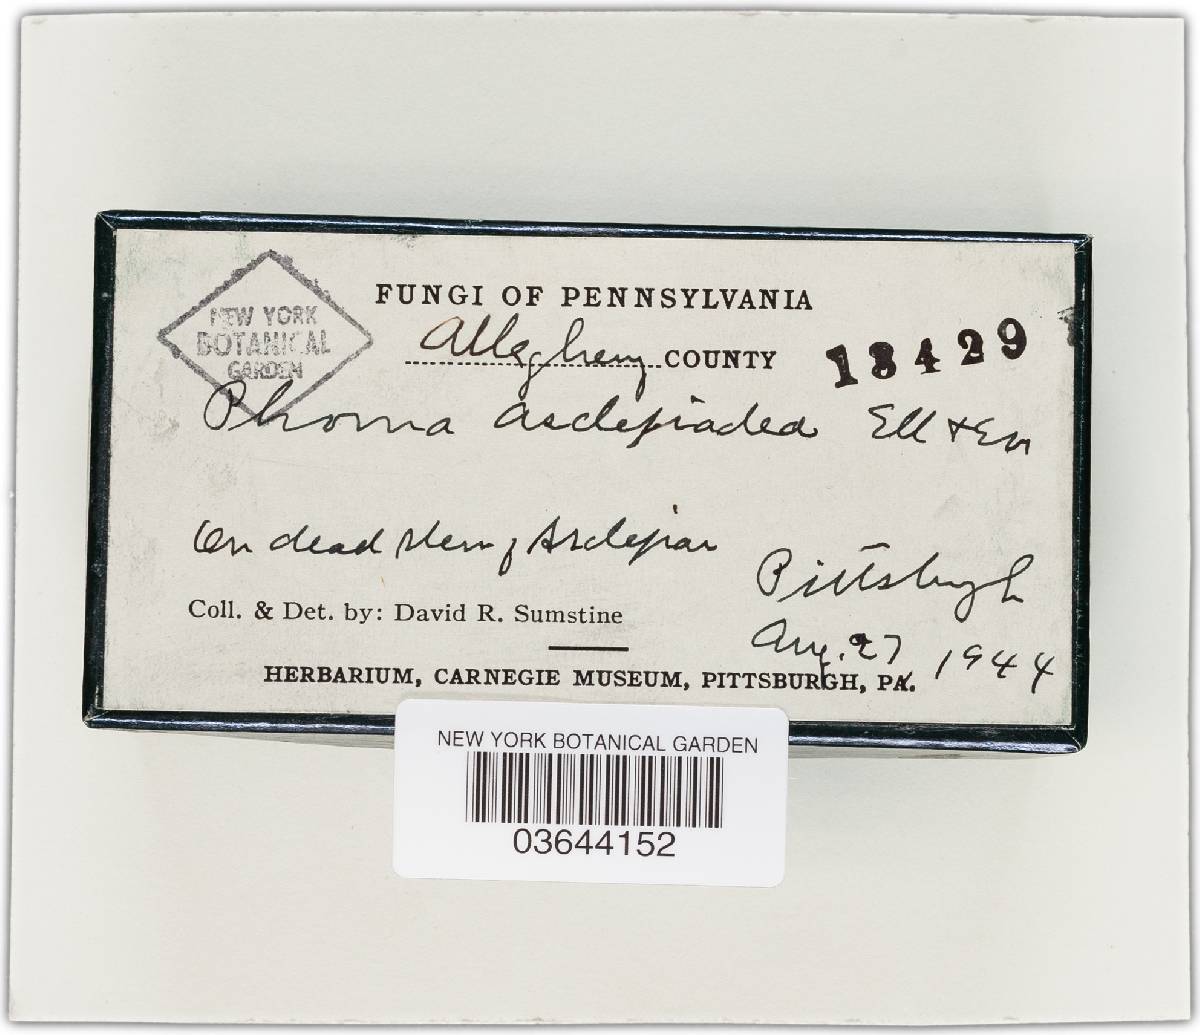 NEW YORK
BOTANICAL
GARDEN
FUNGI OF PENNSYLVANIA
Allegheny COUNTY
13429
Phoma asclepiadea Ell & Ev
On dead stem of Asclepias
Pittsburgh
Coll. & Det. by: David R. Sumstine
Aug. 27 1944
HERBARIUM, CARNEGIE MUSEUM, PITTSBURGH, PA.
NEW YORK BOTANICAL GARDEN
03644152